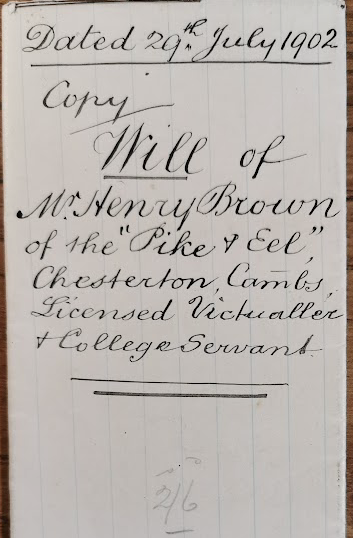 Dated 29th July 1902
Copy
Will of
Mr. Henry Brown
of the "Pike & Eel",
Chesterton, Cambs,
Licensed Victualler
& College Servant.
2/6